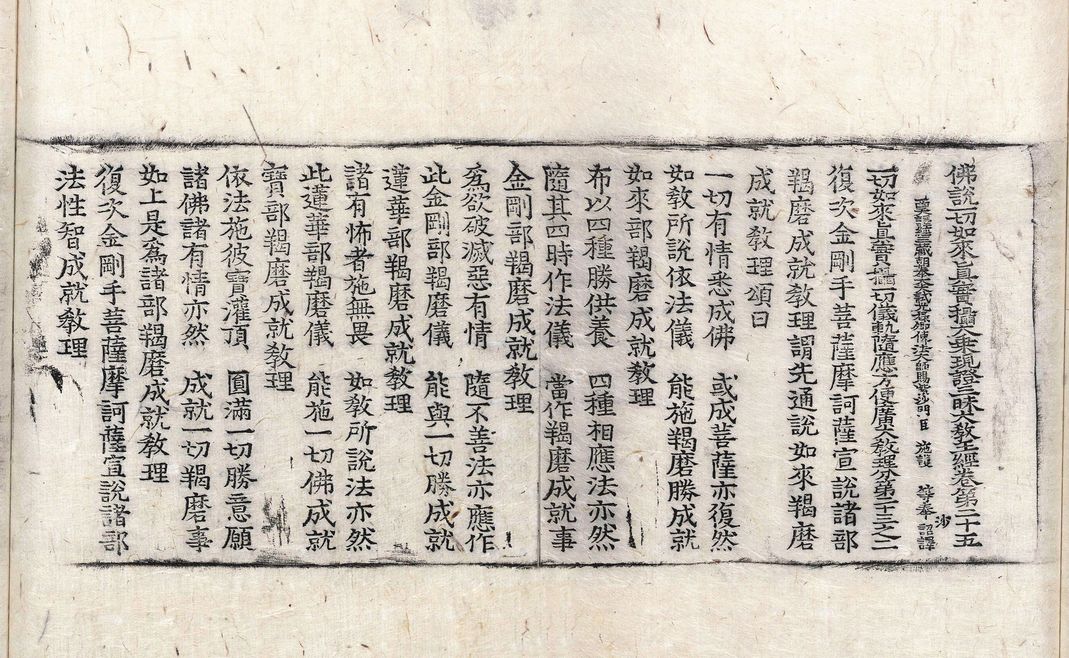 佛說一切如來真實攝大乘現證三昧大教王經卷第二十五
沙
施護 等奉 詔譯
一切如來真實攝一切儀軌隨應方便廣大教理分第二十三之二
復次金剛手菩薩摩訶薩宣說諸部
羯磨成就教理謂先通說如來羯磨
成就教理頌曰
一切有情悉成佛 或成菩薩亦復然
如教所說依法儀 能施羯磨勝成就
如來部羯磨成就教理
布以四種勝供養 四種相應法亦然
隨其四時作法儀 當作羯磨成就事
金剛部羯磨成就教理
為欲破滅惡有情 隨不善法亦應作
此金剛部羯磨儀 能與一切勝成就
蓮華部羯磨成就教理
諸有怖者施無畏 如教所說法亦然
此蓮華部羯磨儀 能施一切佛成就
寶部羯磨成就教理
依法施彼寶灌頂 圓滿一切勝意願
諸佛諸有情亦然 成就一切羯磨事
如上是為諸部羯磨成就教理
復次金剛手菩薩摩訶薩宣說諸部
法性智成就教理